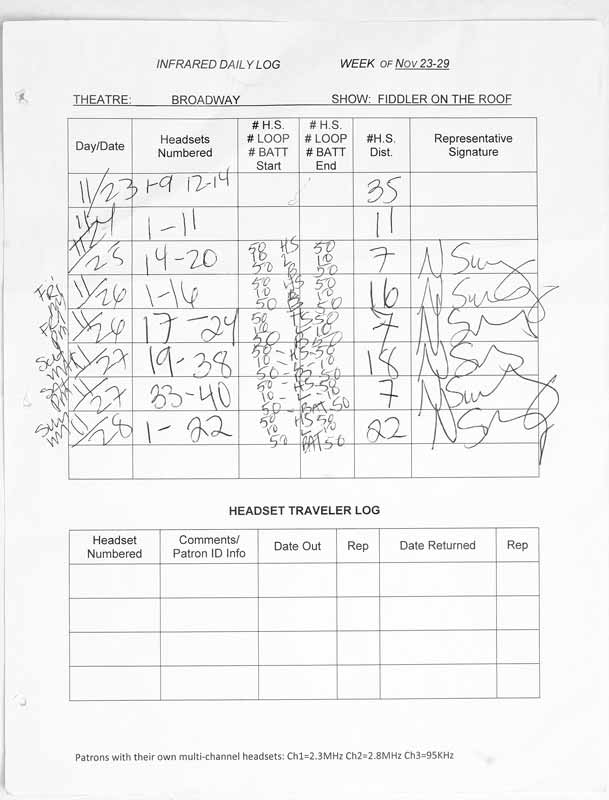 INFRARED DAILY LOG WEEK OF NOV 23-29
THEATRE: BROADWAY SHOW: FIDDLER ON THE ROOF
Day/Date Headsets Numbered # H.S. # LOOP # BATT Start # H.S. # LOOP # BATT End #H.S. Dist. Representative Signature
11/23 1-9 12-14 35
11/24 1-11 11
11/25 14-20 50 HS 50 10 L 10 50 B 50 7
11/26 1-16 50 HS 50 10 L 10 50 B 50 16
11/26 17-24 50 HS 50 10 10 50 50 7
11/27 19-38 50-HS-50 10-L-10 50-B-50 18
11/27 33-40 50-HS-50 10-L-10 50-BAT 50 7
11/28 1-22 50 HS 50 10 L 10 50 BAT 50 22
HEADSET TRAVELER LOG
Headset Numbered Comments/ Patron ID Info Date Out Rep Date Returned Rep
Patrons with their own multi-channel headsets: Ch1=2.3MHz Ch2=2.8MHz Ch3=95KHz